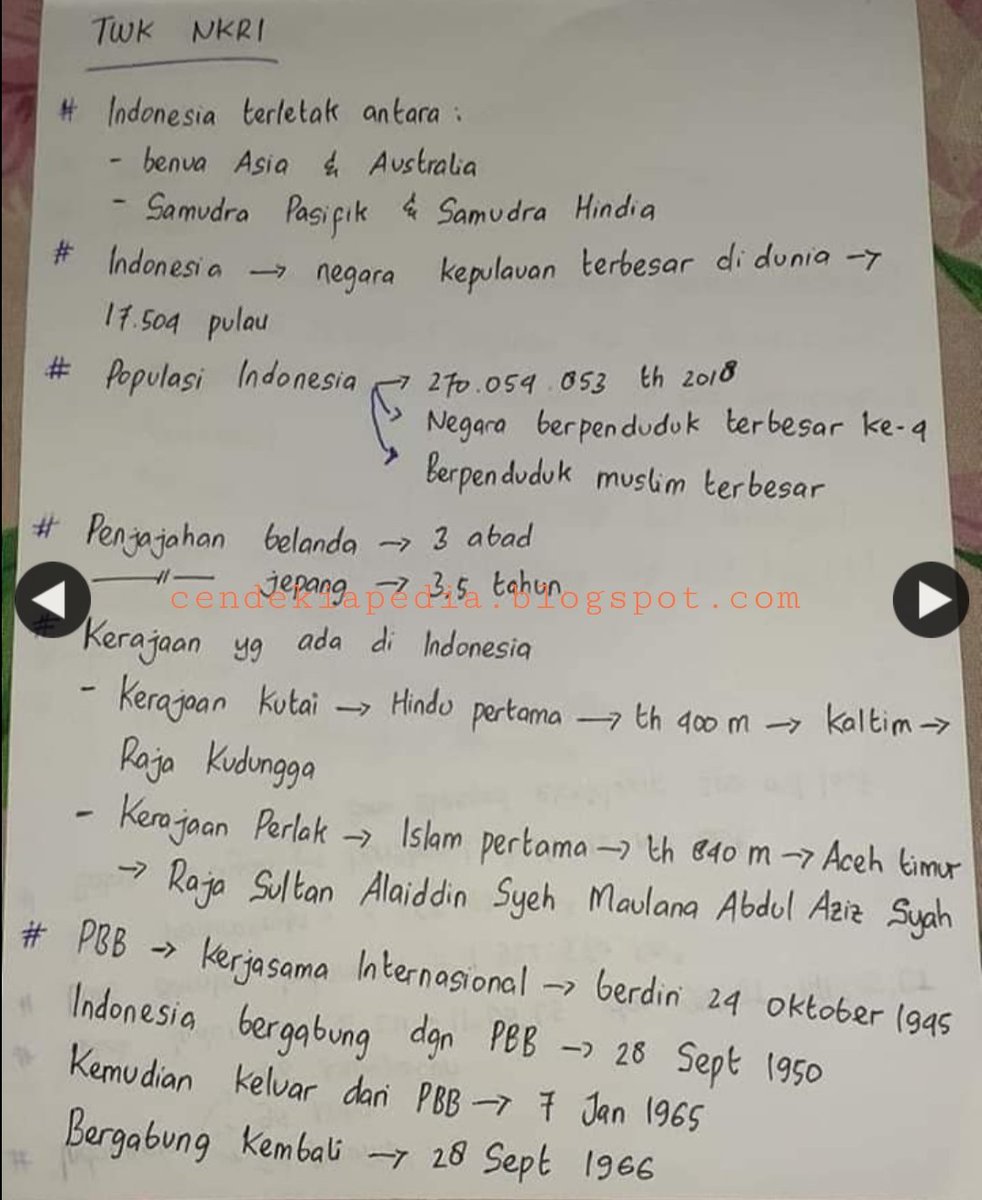 TWK NKRI
# Indonesia terletak antara :
- benua Asia & Australia
- Samudra Pasifik & Samudra Hindia
# Indonesia → negara kepulauan terbesar di dunia →
17.504 pulau
# Populasi Indonesia → 270.054.853 th 2018
Negara berpenduduk terbesar ke-4
Berpenduduk muslim terbesar
# Penjajahan belanda → 3 abad
—〃— jepang → 3,5 tahun
cendekiapedia.blogspot.com
# Kerajaan yg ada di Indonesia
- Kerajaan Kutai → Hindu pertama → th 400 m → Kaltim →
Raja Kudungga
- Kerajaan Perlak → Islam pertama → th 840 m → Aceh timur
→ Raja Sultan Alaiddin Syeh Maulana Abdul Aziz Syah
# PBB → Kerjasama Internasional → berdiri 24 Oktober 1945
Indonesia bergabung dgn PBB → 28 Sept 1950
Kemudian keluar dari PBB → 7 Jan 1965
Bergabung Kembali → 28 Sept 1966